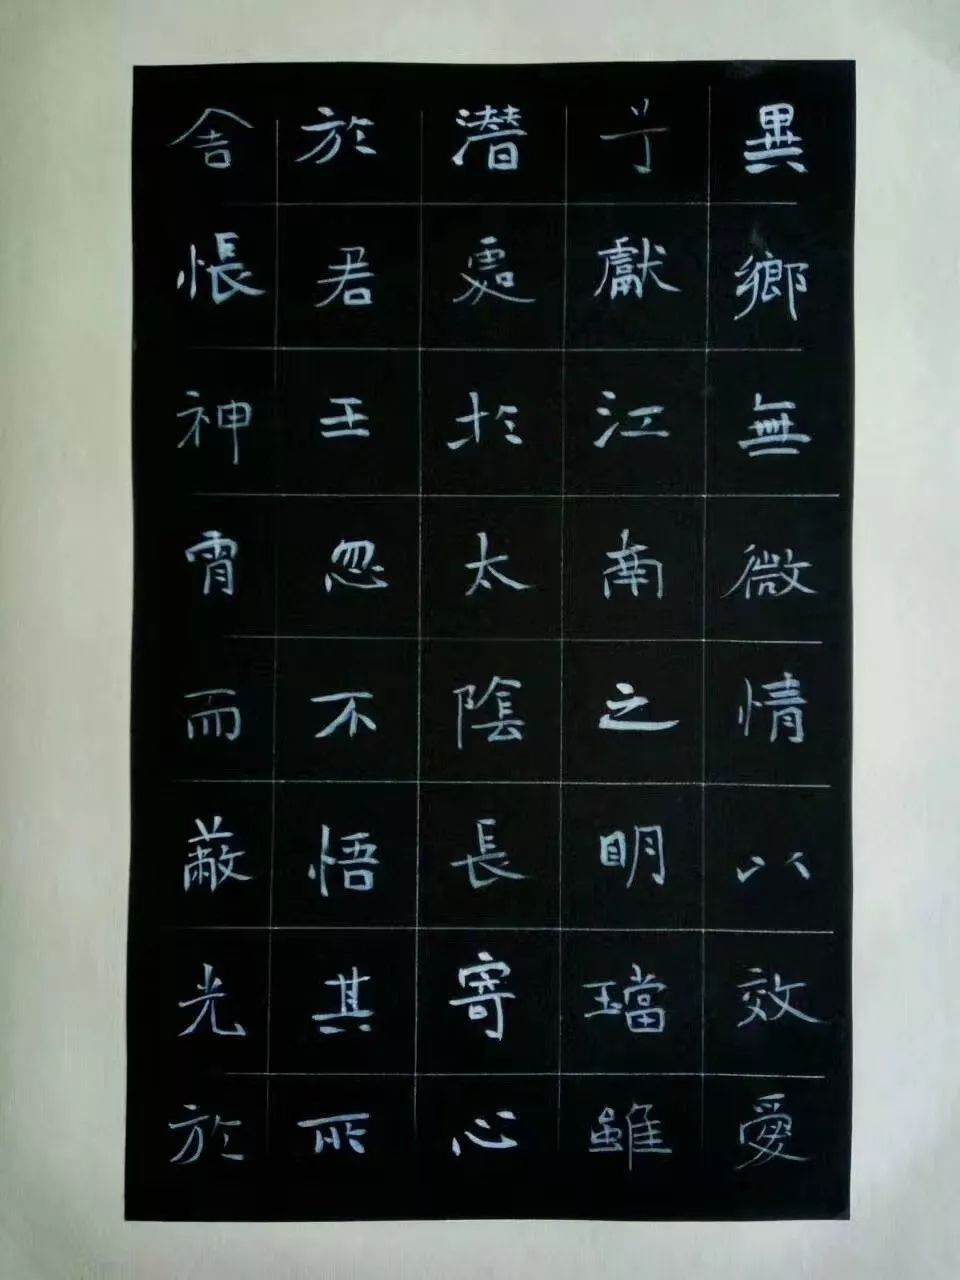 異鄉無微情以效愛
兮獻江南之明璫雖
潜處於太陰長寄心
於君王忽不悟其所
舍悵神宵而蔽光於